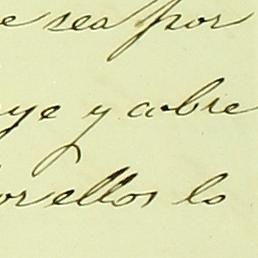 e sea por
ye y cobre
or ellos lo